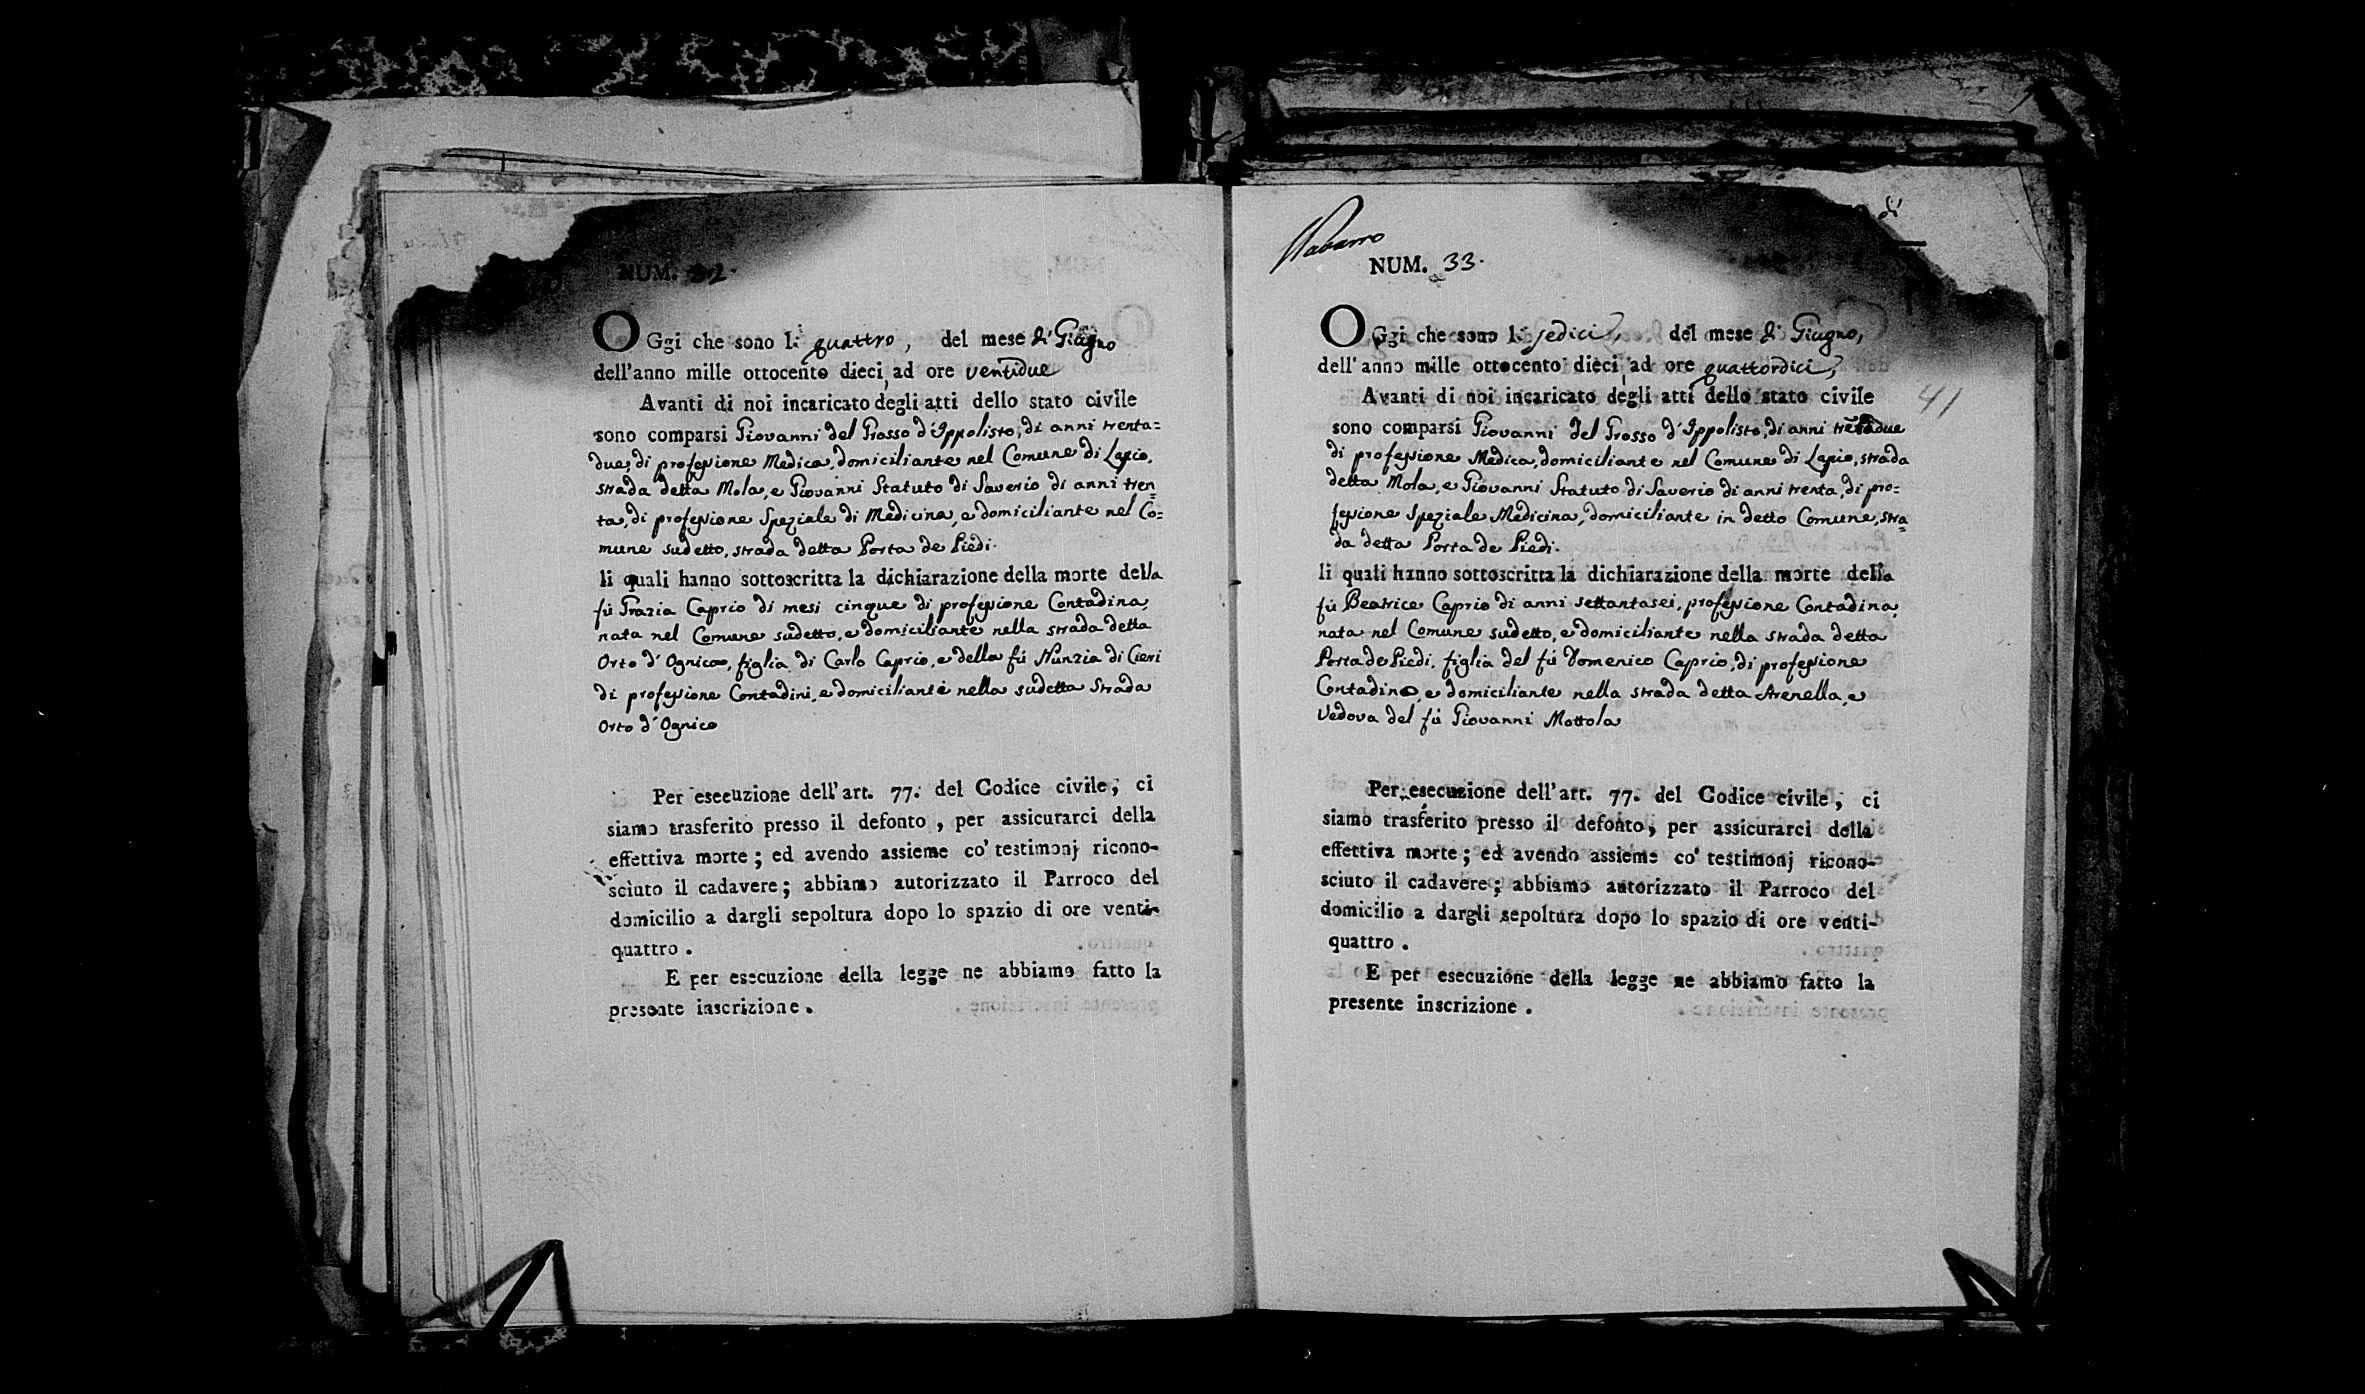 NUM. 32.
OGgi che sono li quattro, del mese di Giugno
dell'anno mille ottocento dieci, ad ore ventidue
Avanti di noi incaricato degli atti dello stato civile
sono comparsi Giovanni del Grosso d'Ippolisto, di anni trenta=
due, di professione Medico, domiciliante nel Comune di Lapio,
strada detta Mola, e Giovanni Statuto di Saverio di anni tren=
ta, di professione Speziale di Medicina, e domiciliante nel Co=
mune sudetto, strada detta Porta de Piedi.
li quali hanno sottoscritta la dichiarazione della morte della
fù Grazia Caprio di mesi cinque di professione Contadina,
nata nel Comune sudetto, e domiciliante nella strada detta
Orto d'Ognico, figlia di Carlo Caprio, e della fù Nunzia di Cieri
di professione Contadini, e domiciliante nella sudetta Strada
Orto d'Ognico
Per esecuzione dell'art. 77. del Codice civile, ci
siamo trasferito presso il defonto, per assicurarci della
effettiva morte; ed avendo assieme co' testimonj ricono-
sciuto il cadavere; abbiamo autorizzato il Parroco del
domicilio a dargli sepoltura dopo lo spazio di ore venti-
quattro.
E per esecuzione della legge ne abbiamo fatto la
presente inscrizione.
di
NUM. 33.
OGgi che sono li sedici, del mese di Giugno,
dell'anno mille ottocento dieci, ad ore quattordici,
Avanti di noi incaricato degli atti dello stato civile
41
sono comparsi Giovanni del Grosso d'Ippolisto, di anni trentadue
di professione Medico, domiciliante nel Comune di Lapio, strada
detta Mola, e Giovanni Statuto di Saverio di anni trenta, di pro=
fessione Speziale Medicina, domiciliante in detto Comune, stra=
da detta Porta de Piedi.
li quali hanno sottoscritta la dichiarazione della morte della
fù Beatrice Caprio di anni settantasei, professione Contadina,
nata nel Comune sudetto, e domiciliante nella strada detta
Porta de Piedi, figlia del fù Domenico Caprio, di professione
Contadino, e domiciliante nella strada detta Arenella, e
Vedova del fù Giovanni Mottola
Per esecuzione dell'art. 77. del Codice civile, ci
siamo trasferito presso il defonto, per assicurarci della
effettiva morte; ed avendo assieme co' testimonj ricono-
sciuto il cadavere; abbiamo autorizzato il Parroco del
domicilio a dargli sepoltura dopo lo spazio di ore venti-
quattro.
E per esecuzione della legge ne abbiamo fatto la
presente inscrizione.